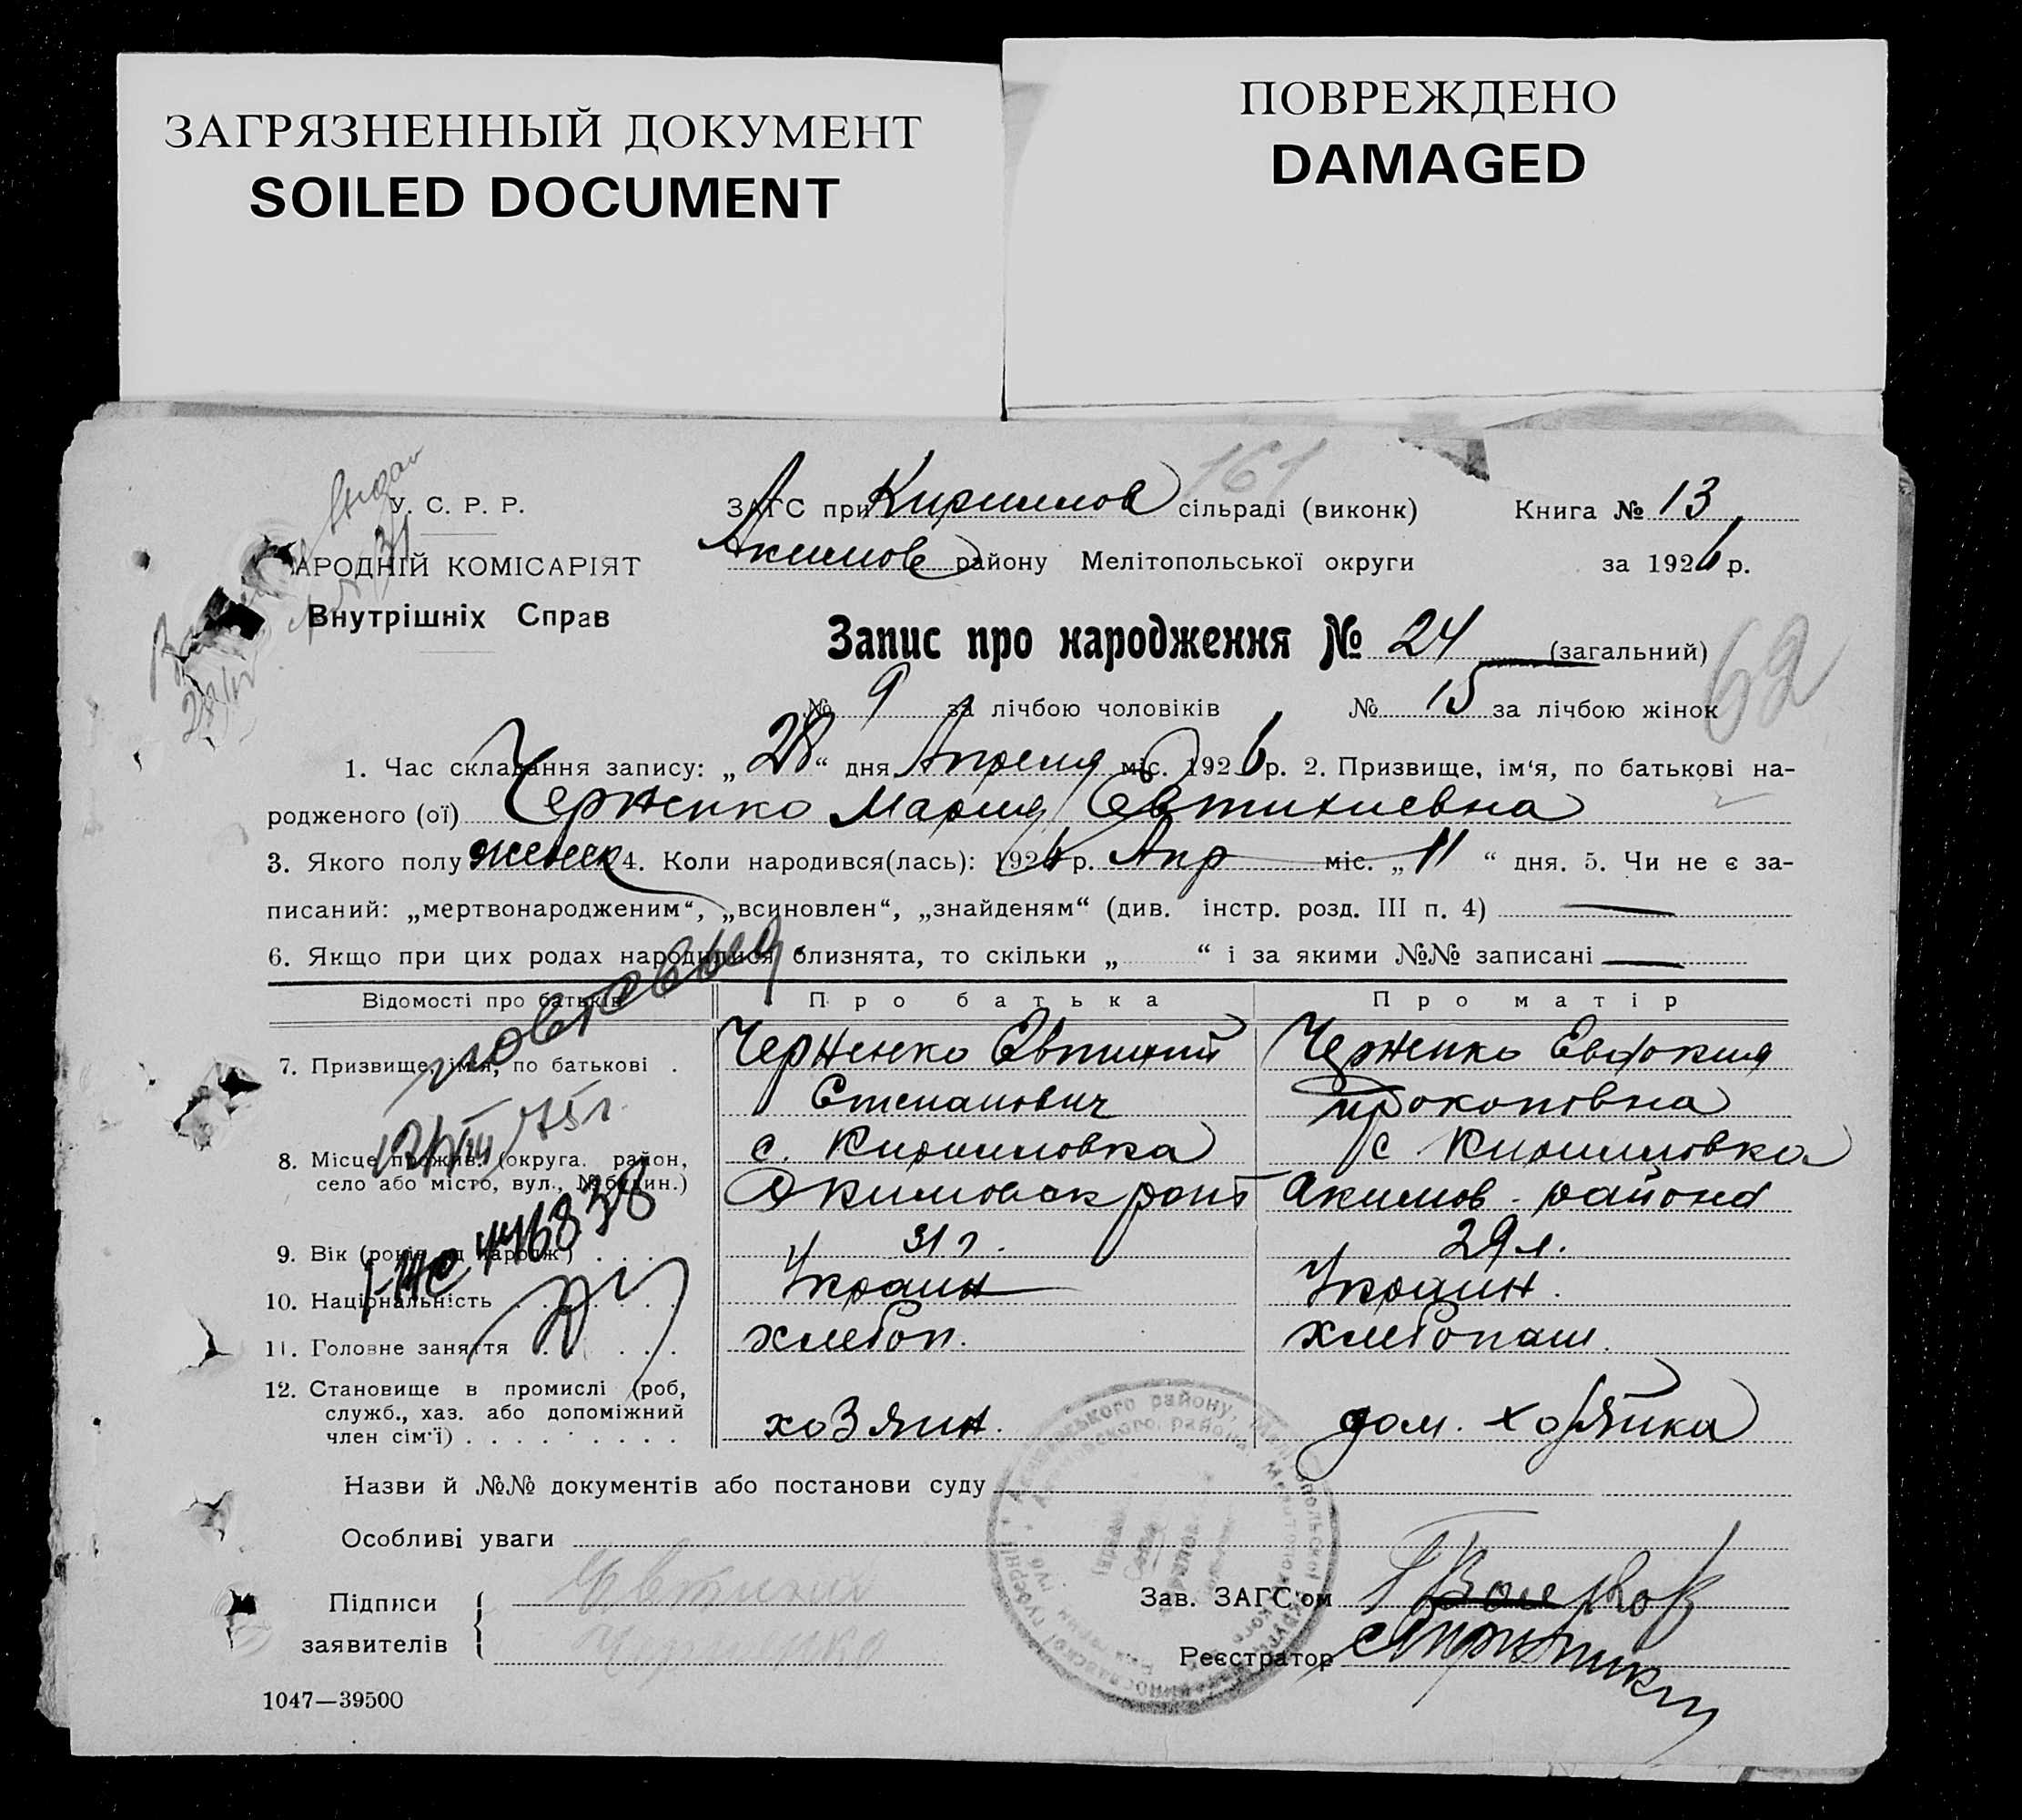 ЗАГРЯЗНЕННЫЙ ДОКУМЕНТ
SOILED DOCUMENT
ПОВРЕЖДЕНО
DAMAGED
161
У. С. Р. Р.
АРОДНІЙ КОМІСАРІЯТ
Внутрішніх Справ
ЗАГС при Кириллов сільраді (виконк)
Акимов району Мелітопольської округи
Книга № 13
за 1926 р.
Запис про народження № 24 (загальний)
62
№ 9 за лічбою чоловіків № 15 за лічбою жінок
1. Час складання запису: „28“ дня Апреля міс. 1926 р. 2. Призвище, ім‘я, по батькові на-
родженого (ої) Мария Евтихиевна
3. Якого полу женск 4. Коли народився(лась): 1926 р. Апр міс. „11“ дня. 5. Чи не є за-
писаний: „мертвонародженим“, „всиновлен“, „знайденям“ (див. інстр. розд. III п. 4) —
6. Якщо при цих родах народилися близнята, то скільки „ “ і за якими №№ записані —
Відомості про батьків Про батька Про матір
7. Призвище, ім‘я, по батькові . Евтихий Евдокия
Степанович Прокоповна
8. Місце прожив. (округа. район, с. Кирилловка с Кирилловка
село або місто, вул., № будин.) Акимовск район Акимов - района
9. Вік (років од народж.) . . . 31 г. 29 л.
10. Національність . . . . . . Украин Украин.
11. Головне заняття . . . . . хлебоп. хлебопаш.
12. Становище в промислі (роб,
служб., хаз. або допоміжний хозяин. дом. хозяйка
член сім‘ї) . . . . . . . . .
повторное
12/VIII 75 г.
I-ЖС 446838
Назви й №№ документів або постанови суду
Особливі уваги
Підписи
заявителів
Евтихий
Зав. ЗАГС‘ом
Реєстратор
1047—39500